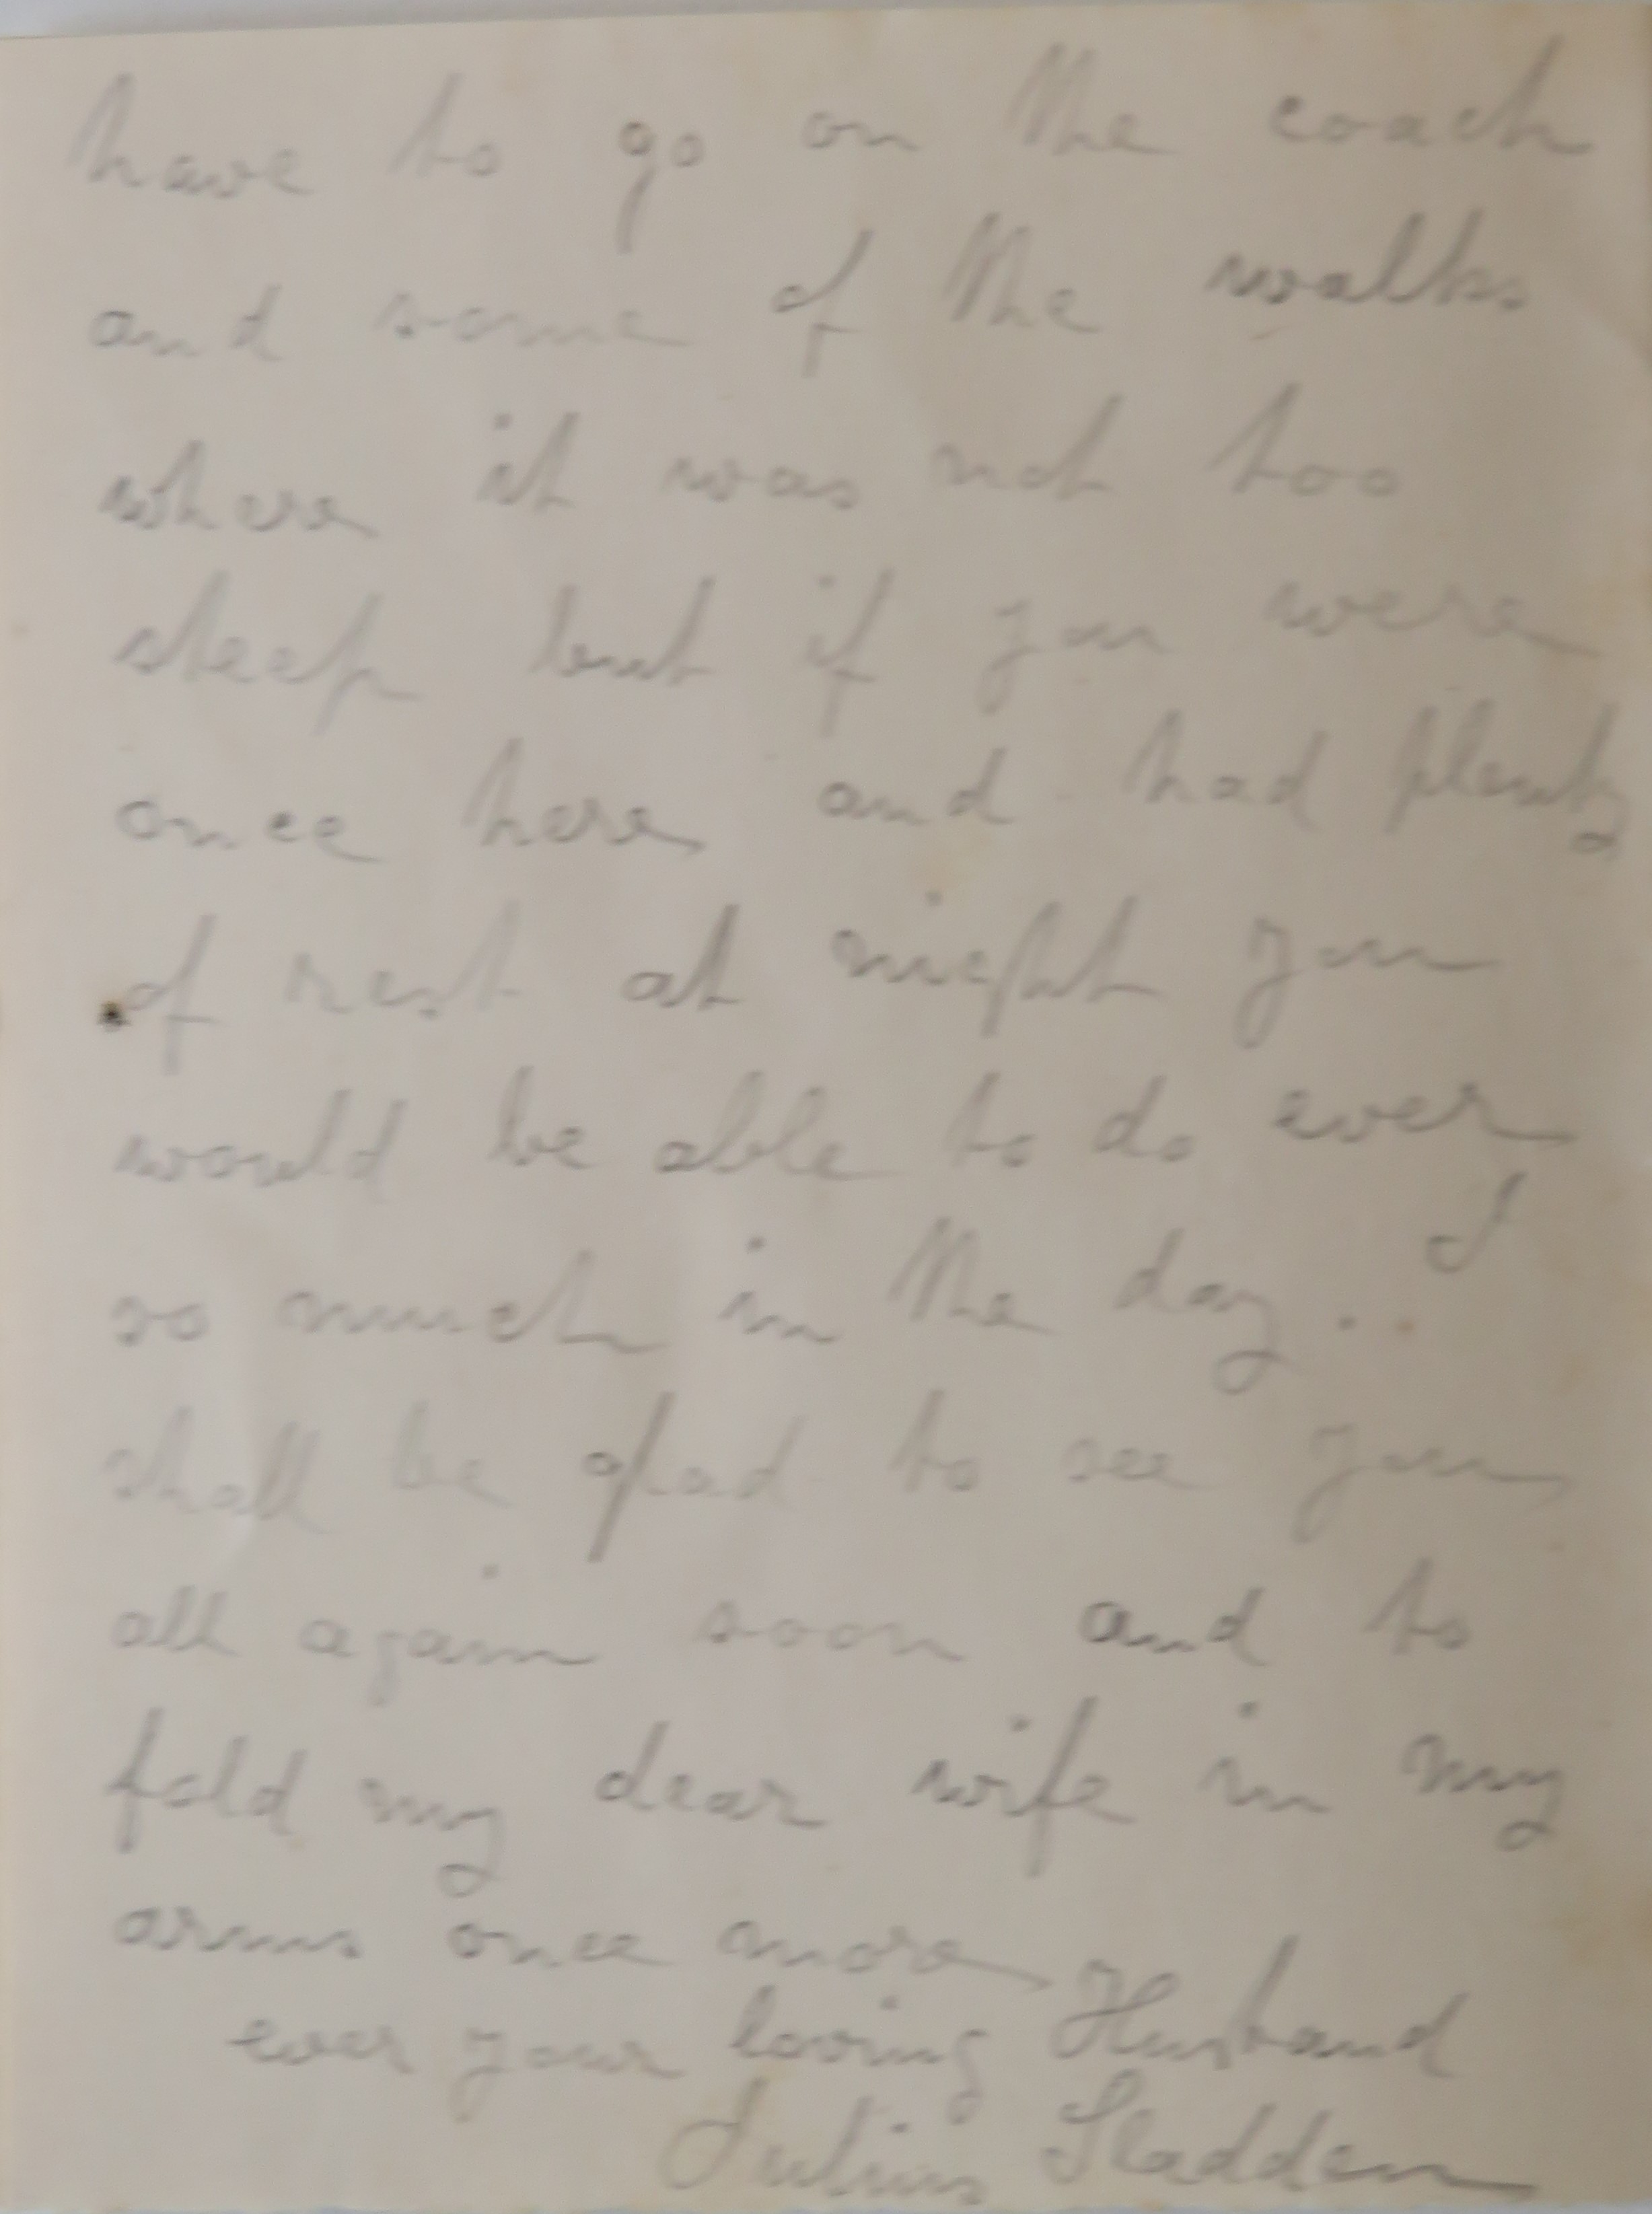 have to go on the coach
and some of the walks
where it was not too
steep but if you were
once here and had plenty
of rest at night you
would be able to do ever
so much in the day. I
shall be glad to see you
all again soon and to
fold my dear wife in my
arms once more
ever your loving Husband
Julius Sladden